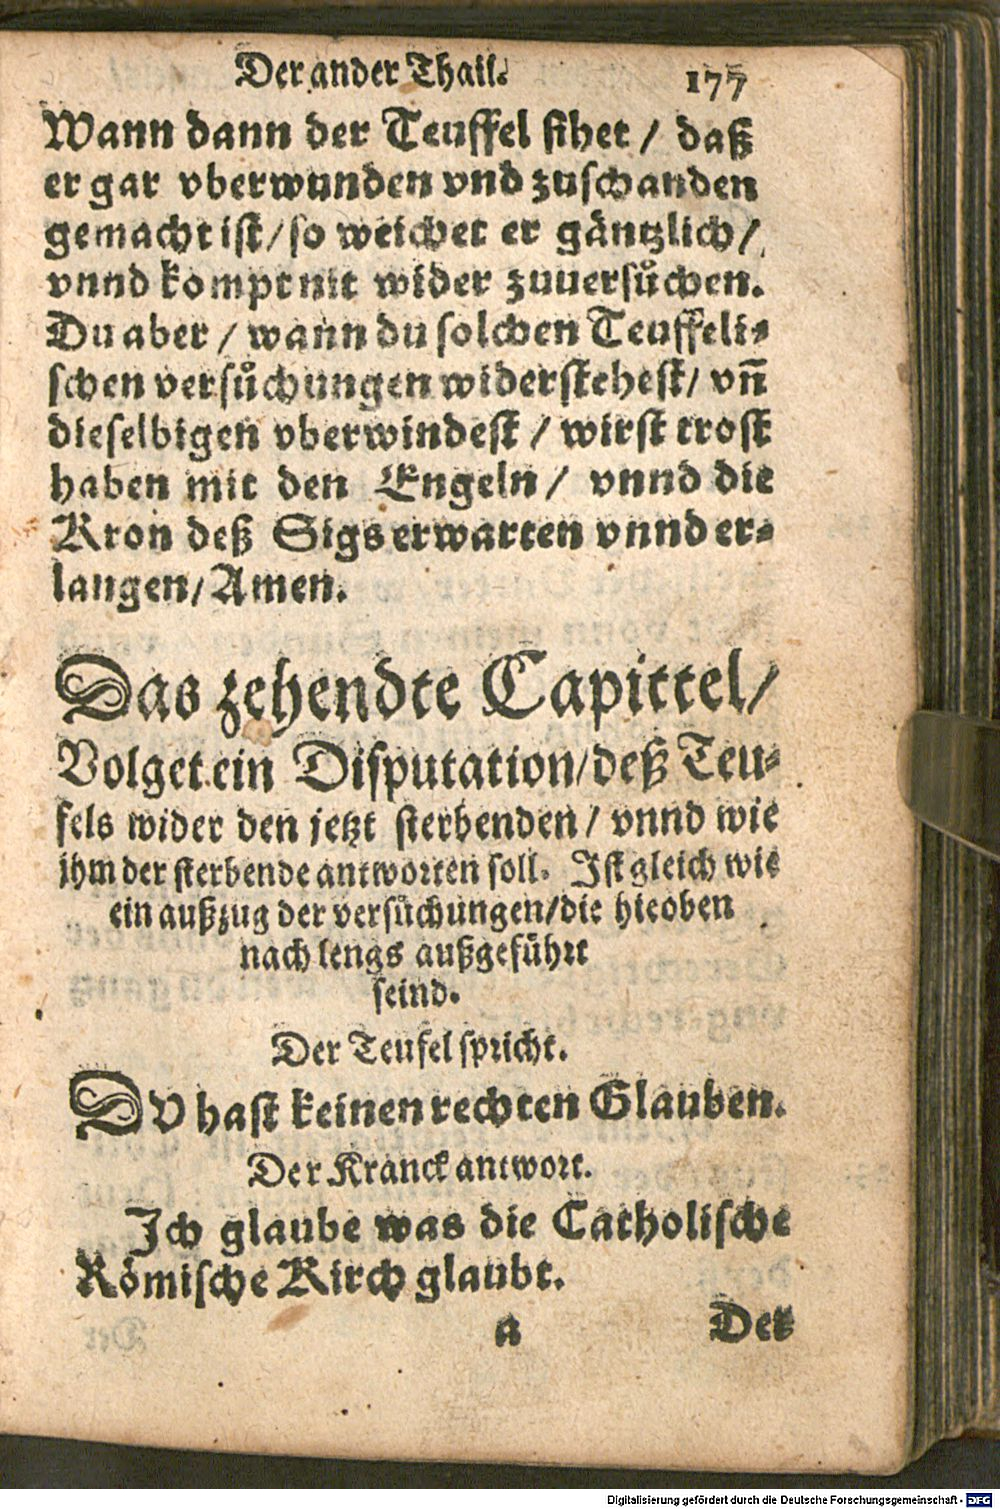 Der ander Thail. 177
Wann dann der Teuffel sihet / daß
er gar vberwunden vnd zuschanden
gemacht ist / so weichet er gäntzlich /
vnnd kompt nit wider zuuersůchen.
Du aber / wann du solchen Teuffeli-
schen versůchungen widerstehest / vñ
dieselbigen vberwindest / wirst trost
haben mit den Engeln / vnnd die
Kron deß Sigs erwarten vnnd er-
langen / Amen.
Das zehendte Capittel /
Volget ein Disputation / deß Teu-
fels wider den jetzt sterbenden / vnnd wie
jhm der sterbende antworten soll. Ist gleich wie
ein außzug der versůchungen / die hieoben
nach lengs außgeführt
seind.
Der Teufel spricht.
DV hast keinen rechten Glauben.
Der Kranck antwort.
Ich glaube was die Catholische
Römische Kirch glaubt.
a Der
Digitalisierung gefördert durch die Deutsche Forschungsgemeinschaft - DFG